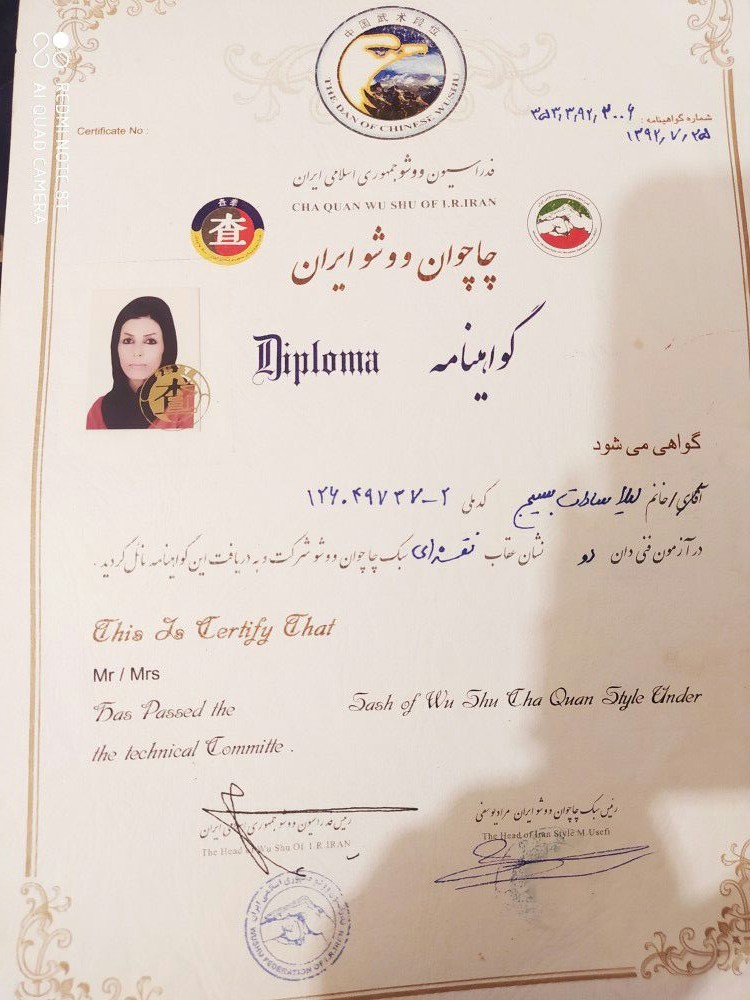 REDMI NOTE 8T
AI QUAD CAMERA
中国武术段位
THE DAN OF CHINESE WUSHU
Certificate No :
شماره گواهینامه :
۱۳۹۲٫۷٫۲۵
فدراسیون ووشو جمهوری اسلامی ایران
CHA QUAN WU SHU OF I.R.IRAN
查拳
查
چاچوان ووشو ایران
Diploma
گواهینامه
查
گواهی می شود
آقای/خانم لیلا سادات بسیج کدملی ۱۲۶۰۴۹۷۳۷-۲
در آزمون فنی دان دو نشان عقاب نقره‌ای سبک چاچوان ووشو شرکت و به دریافت این گواهینامه نائل گردید .
This Is Certify That
Mr / Mrs
Has Passed the Sash of Wu Shu Cha Quan Style Under
the technical Committe .
رئیس فدراسیون ووشو جمهوری اسلامی ایران
The Head of Wu Shu Of I.R.IRAN
رئیس سبک چاچوان ووشو ایران مراد یوسفی
The Head of Iran Style M.Usefi
WUSHU FEDERATION OF I.R.IRAN